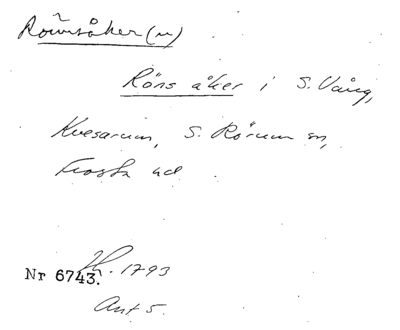 Rönsåker (n)
Röns åker i S. Vång,
Kvesarum, S. Rörum sn,
Frosta hd
H. 1793
Nr 6743.
Ant 5.